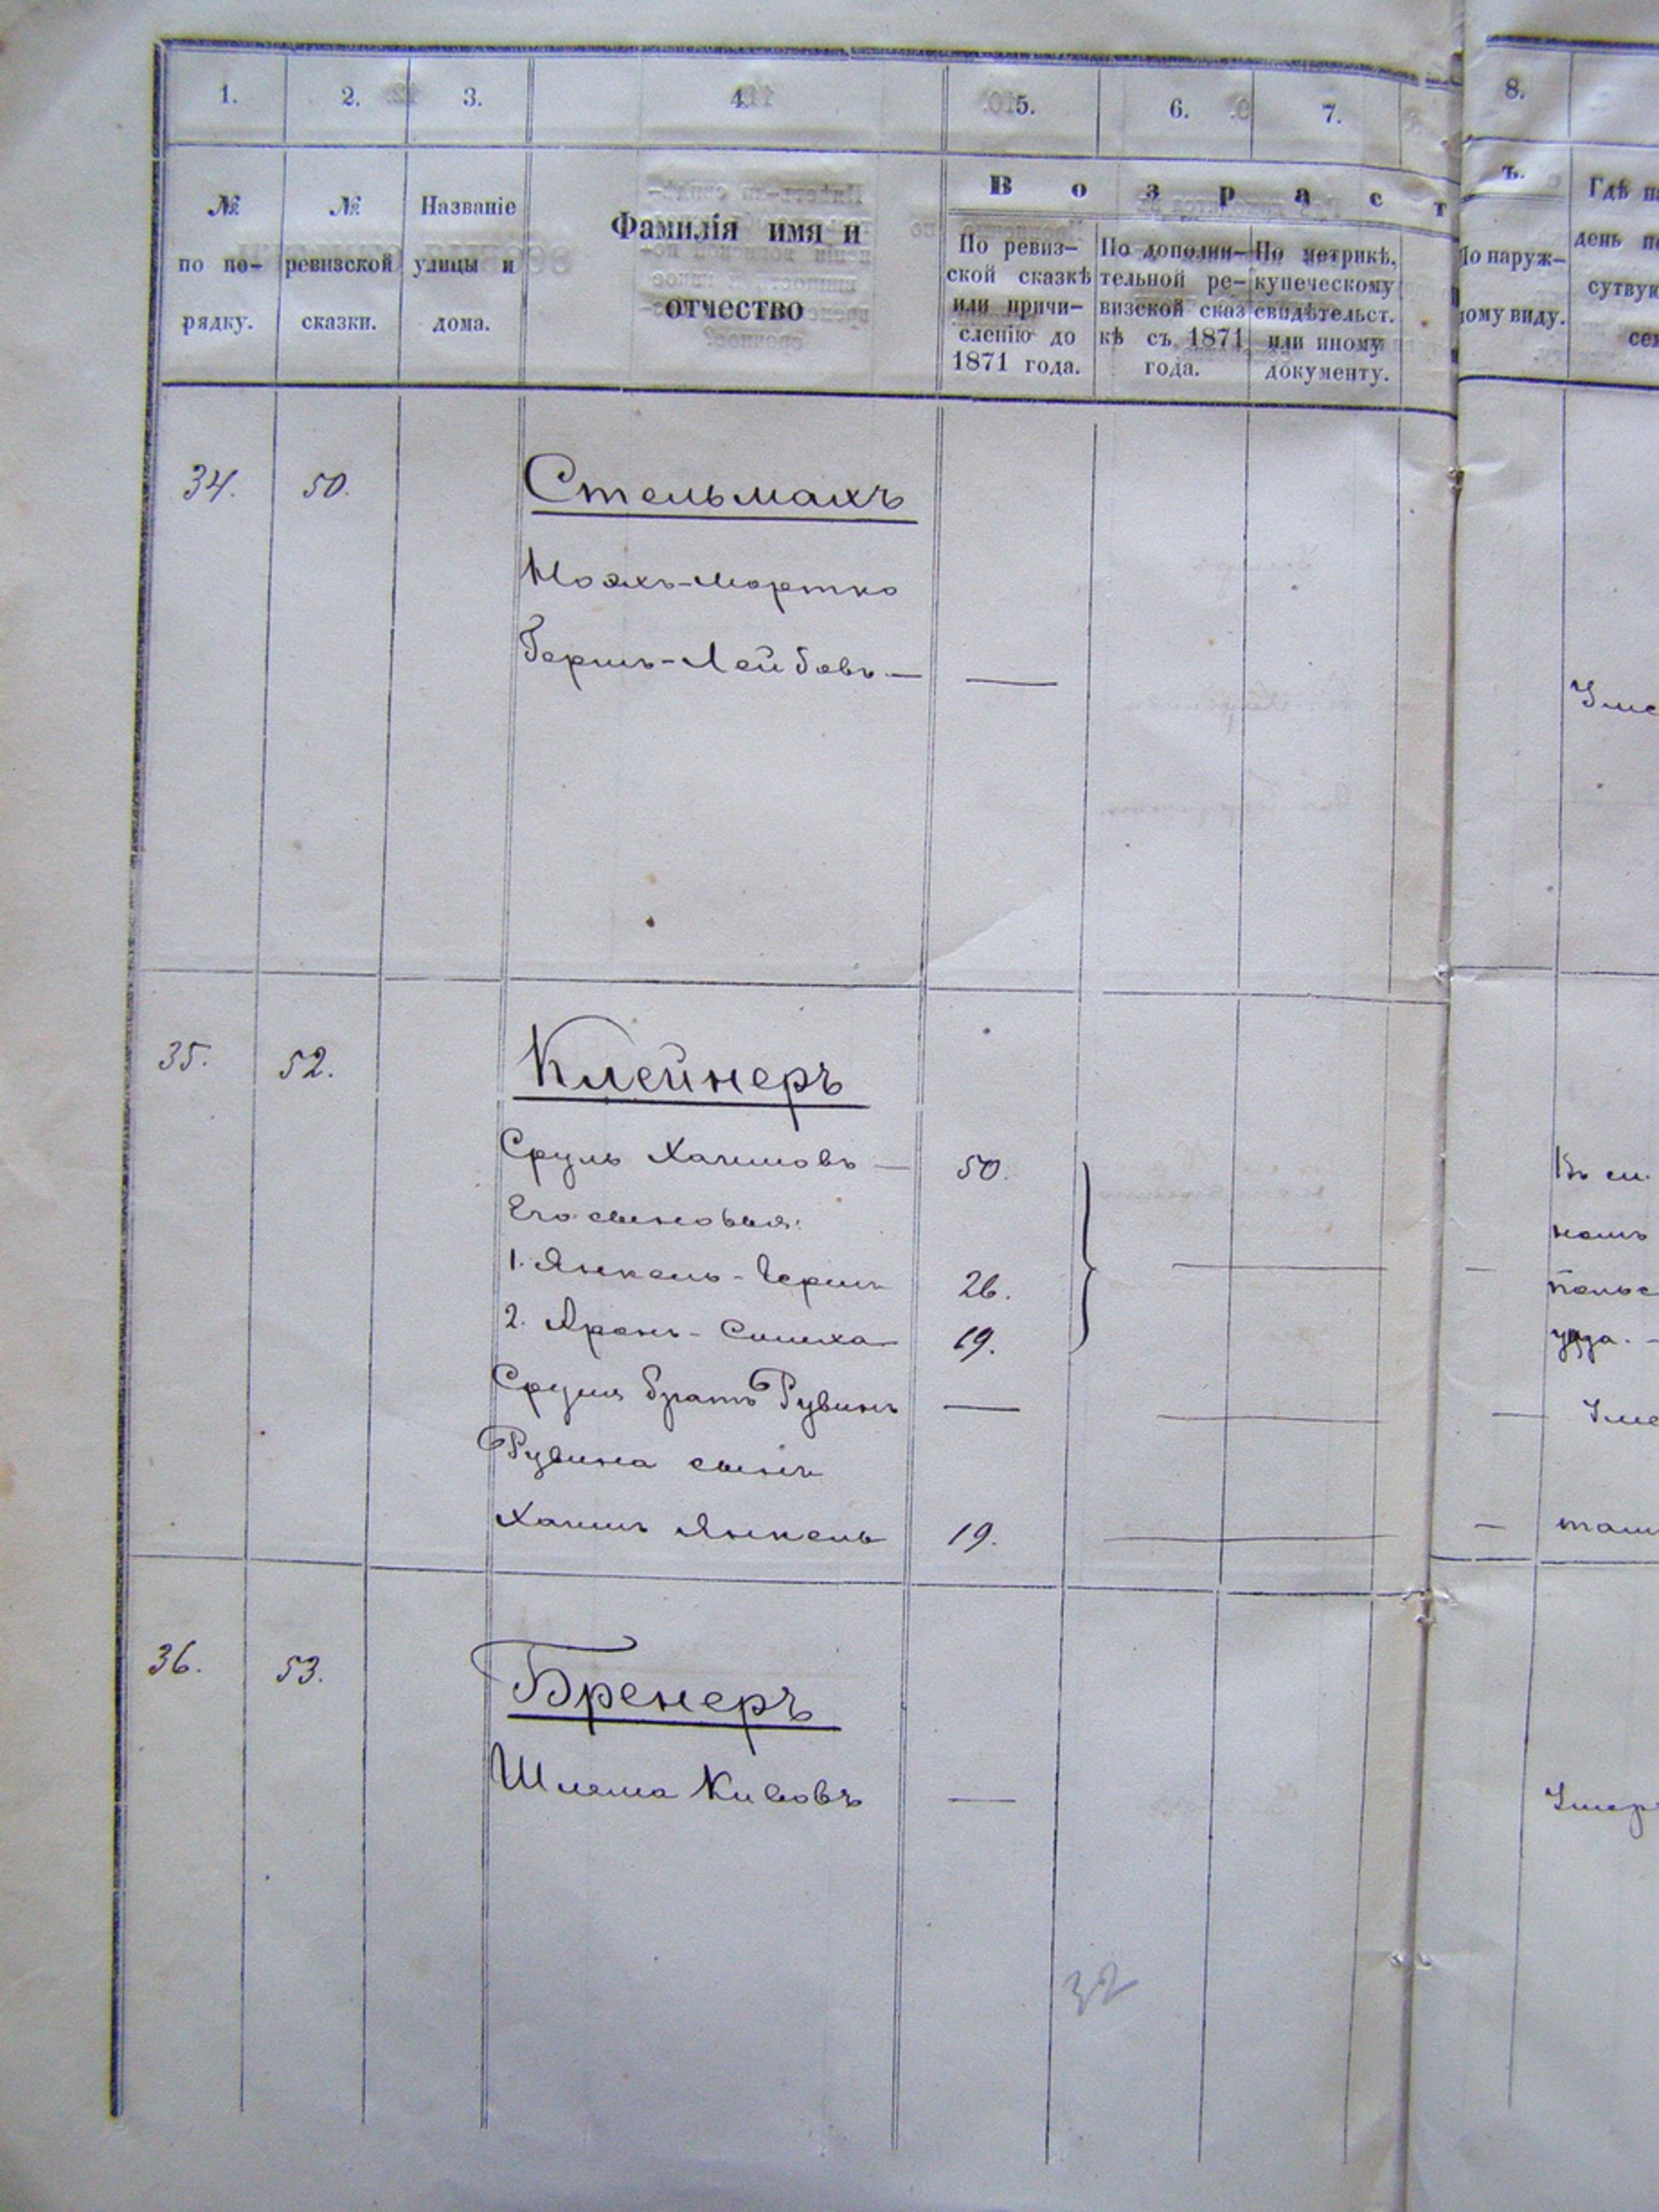 1. 2. 3. 4. 5. 6. 7. 8.
№ по по-рядку.
№ ревизской сказки.
Названіе улицы и дома.
Фамилія имя и
отчество
Возраст
ъ.
По ревиз-
ской сказкѣ
или причи-
сленію до
1871 года.
По дополни-
тельной ре-
визской сказ
кѣ съ 1871
года.
По метрикѣ,
купеческому
свидѣтельст.
или иному
документу.
По наруж-
ному виду.
Гдѣ
день
сутвую
34. 50. Стельмахъ
Мортко
Гершъ-Лейбовъ — —
Уме
35. 52. Клейнеръ
Сруль Хаимовъ — 50.
Его сыновья:
1. Янкель-Герш 26. — —
2. Аронъ-Симха 19.
Сруля братъ Рувинъ — — —
Рувина сынъ
Хаимъ Янкель 19. — —
Въ
намъ
уѣзда. —
Уме
36. 53. Бренеръ
Шлема Кивовъ —
Умер
32